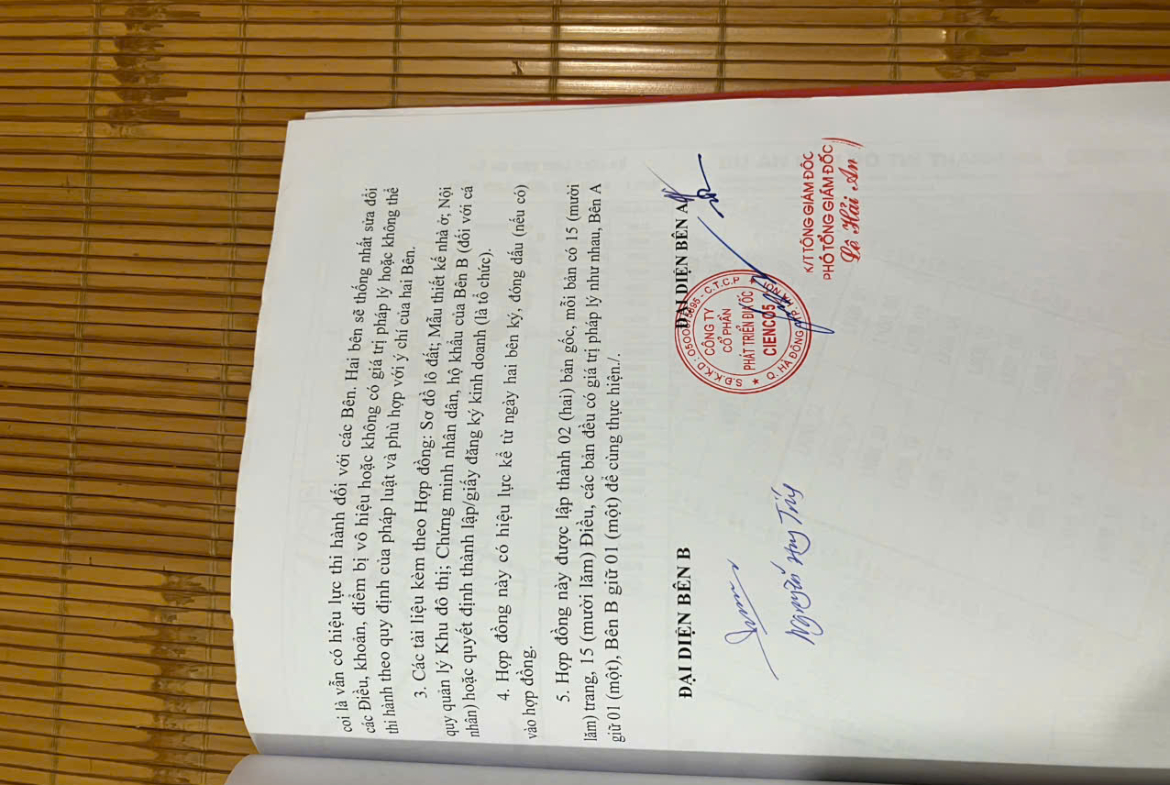 coi là vẫn có hiệu lực thi hành đối với các Bên. Hai bên sẽ thống nhất sửa đổi
các Điều, khoản, điểm bị vô hiệu hoặc không có giá trị pháp lý hoặc không thể
thi hành theo quy định của pháp luật và phù hợp với ý chí của hai Bên.
3. Các tài liệu kèm theo Hợp đồng: Sơ đồ lô đất; Mẫu thiết kế nhà ở; Nội
quy quản lý Khu đô thị; Chứng minh nhân dân, hộ khẩu của Bên B (đối với cá
nhân) hoặc quyết định thành lập/giấy đăng ký kinh doanh (là tổ chức).
4. Hợp đồng này có hiệu lực kể từ ngày hai bên ký, đóng dấu (nếu có)
vào hợp đồng.
5. Hợp đồng này được lập thành 02 (hai) bản gốc, mỗi bản có 15 (mười
lăm) trang, 15 (mười lăm) Điều, các bản đều có giá trị pháp lý như nhau, Bên A
giữ 01 (một), Bên B giữ 01 (một) để cùng thực hiện./.
ĐẠI DIỆN BÊN B
ĐẠI DIỆN BÊN A
S.Đ.K.K.D: - C.T.C.P
CÔNG TY
CỔ PHẦN
PHÁT TRIỂN ĐỊA ỐC
CIENCO5
Q. HÀ ĐÔNG
K/T TỔNG GIÁM ĐỐC
PHÓ TỔNG GIÁM ĐỐC
Lê Hải An
Nguyễn Huy